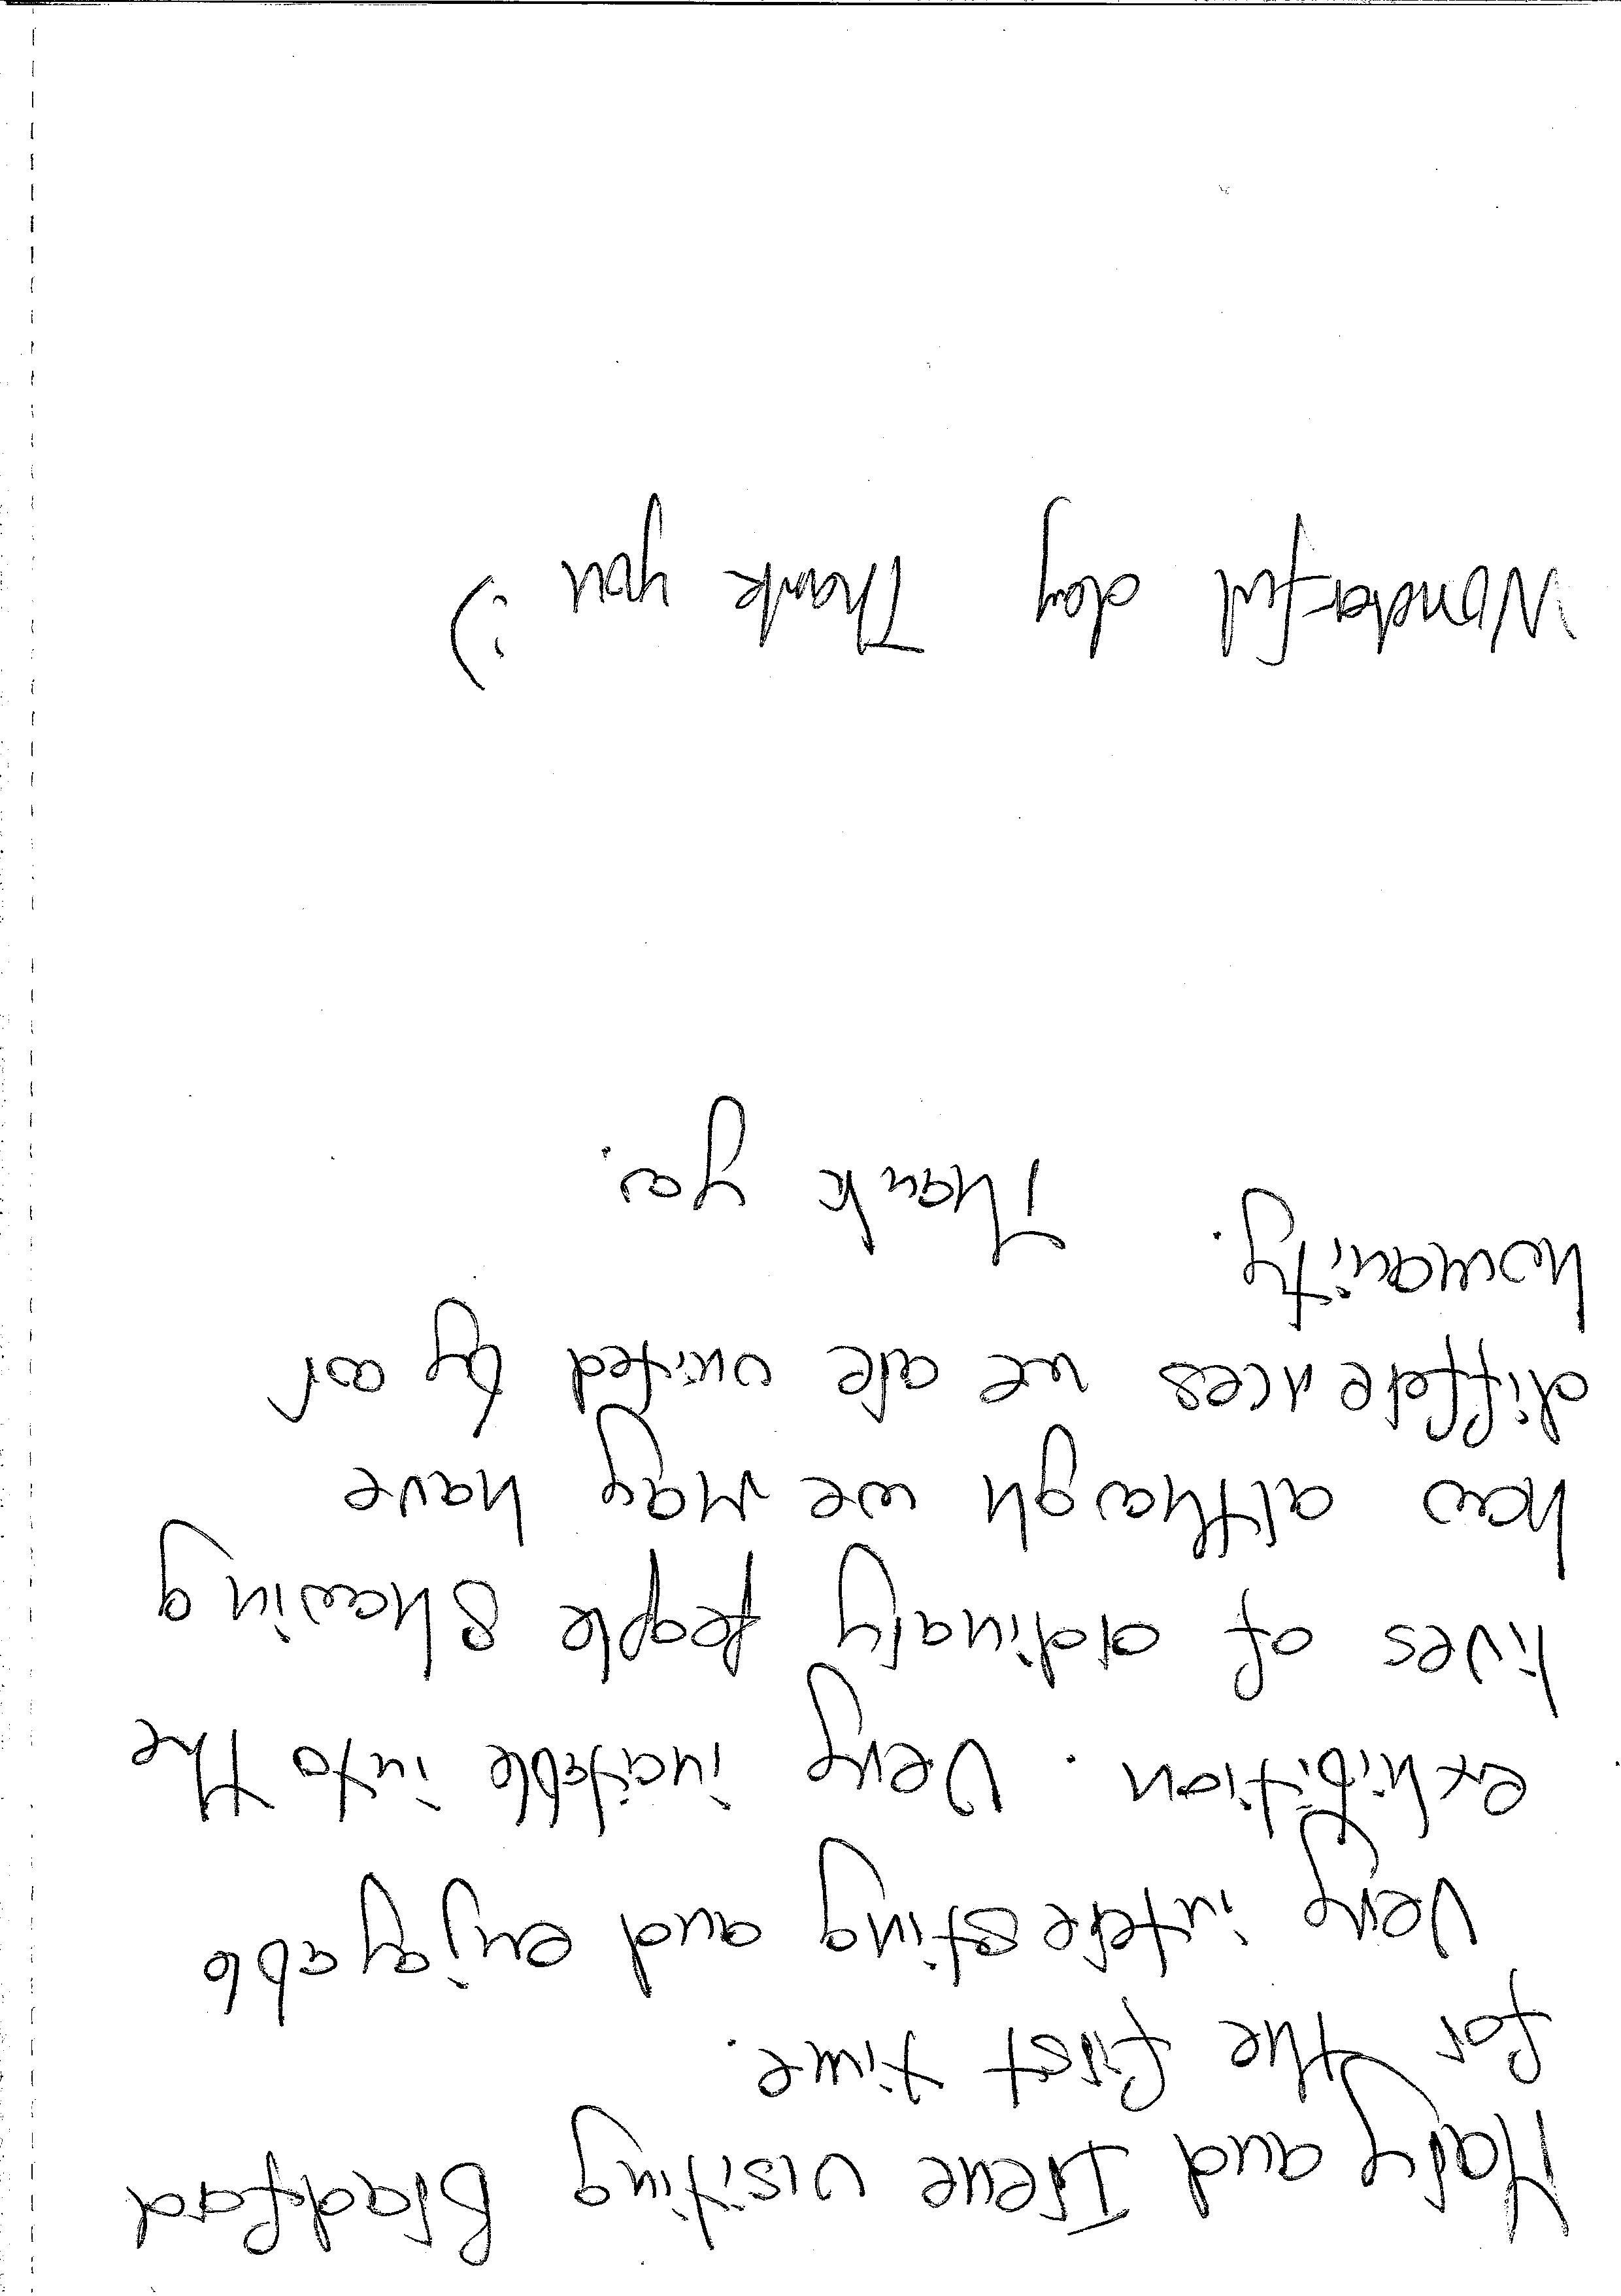 Mary and Irene visiting Bradford
for the first time.
Very interesting and enjoyable
exhibition. Very incitable into the
lives of ordinary people showing
how although we may have
differences we are united by our
humanity. Thank you.
Wonderful day Thank you :)